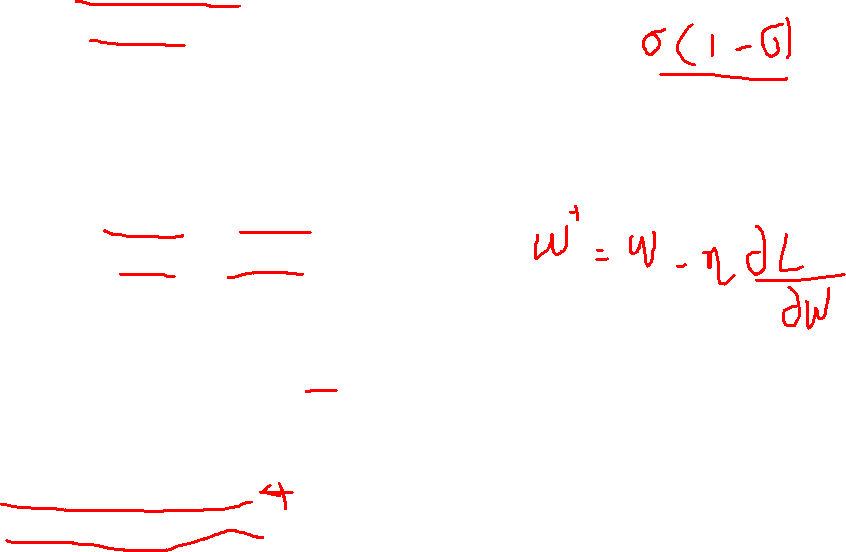 σ(1-σ)
w⁺ = w - η ∂L/∂w
4